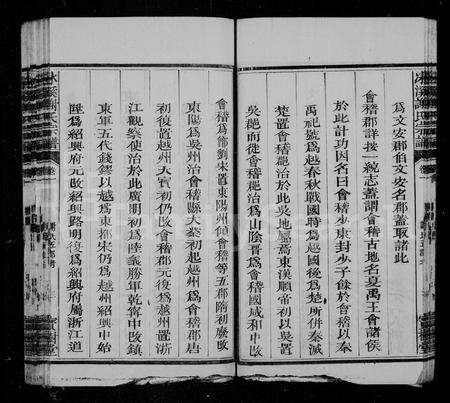 為文安郡伯文安名郡蓋取諸此
會稽郡詳按一統志蓋謂會稽古地名夏禹王會諸侯
於此計功因名曰會稽少康封少子餘於會稽以奉
禹祀號為越春秋戰國時為越國後為楚所併秦滅
楚置會稽郡治於此吳地屬焉東漢順帝初以吳置
吳郡而徙會稽郡治為山陰晉為會稽國咸和中改
會稽為郡劉宋置東陽州領會稽等五郡隋初廢改
東陽為吳州治會稽縣大業初起越州為會稽郡唐
初復置越州天寶初仍改會稽郡元復為越州置浙
江觀察使治於此廣明初為陞義勝軍乾寧中改鎮
東軍五代錢鏐以越為東都宋仍為越州紹興中始
陞為紹興府元改紹興路明復為紹興府屬浙江道